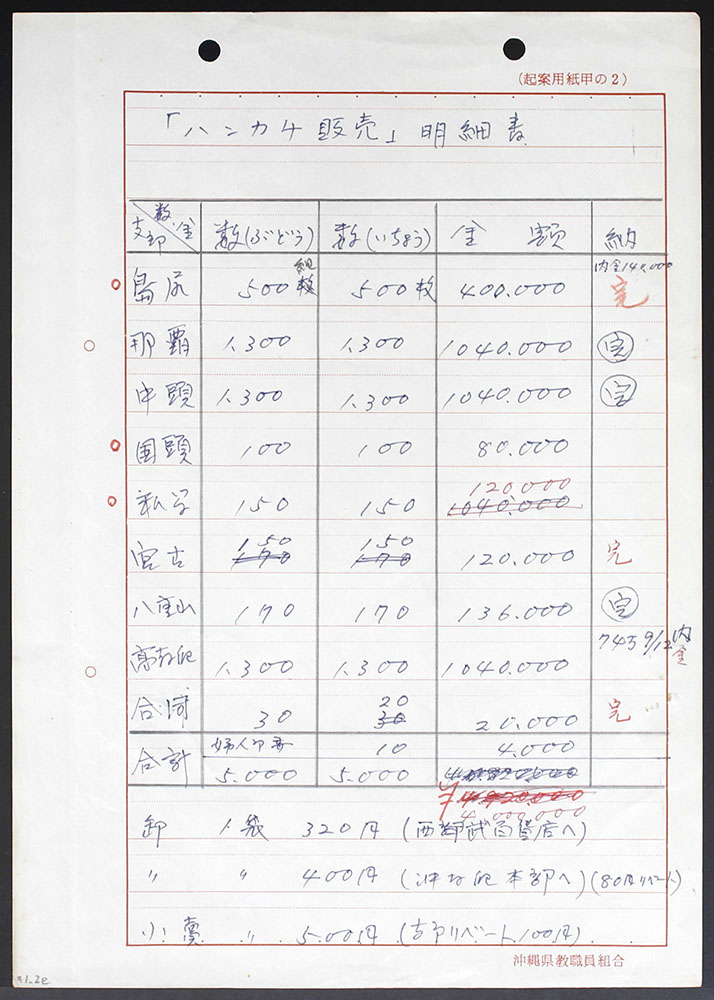 (起案用紙甲の2)
「ハンカチ販売」明細書
支部 数・金 数(ぶどう) 数(いちょう) 金額 納
内金140,000
島尻 500組 枚 500枚 400.000 完
那覇 1.300 1.300 1040.000 完
中頭 1.300 1.300 1040.000 完
国頭 100 100 80.000
120,000
私学 150 150 1040.000
150 150
宮古 170 170 120.000 完
八重山 170 170 136.000 完
7459/12 内金
高教組 1.300 1.300 1040.000
20
30 30 20.000 完
婦人部 10 4.000
合計 5.000 5.000
4.000.000
卸 1袋 320円
〃 〃 400円 (沖教組本部へ)(80円リベート)
小売 〃 500円 (支部リベート100円)
沖縄県教職員組合